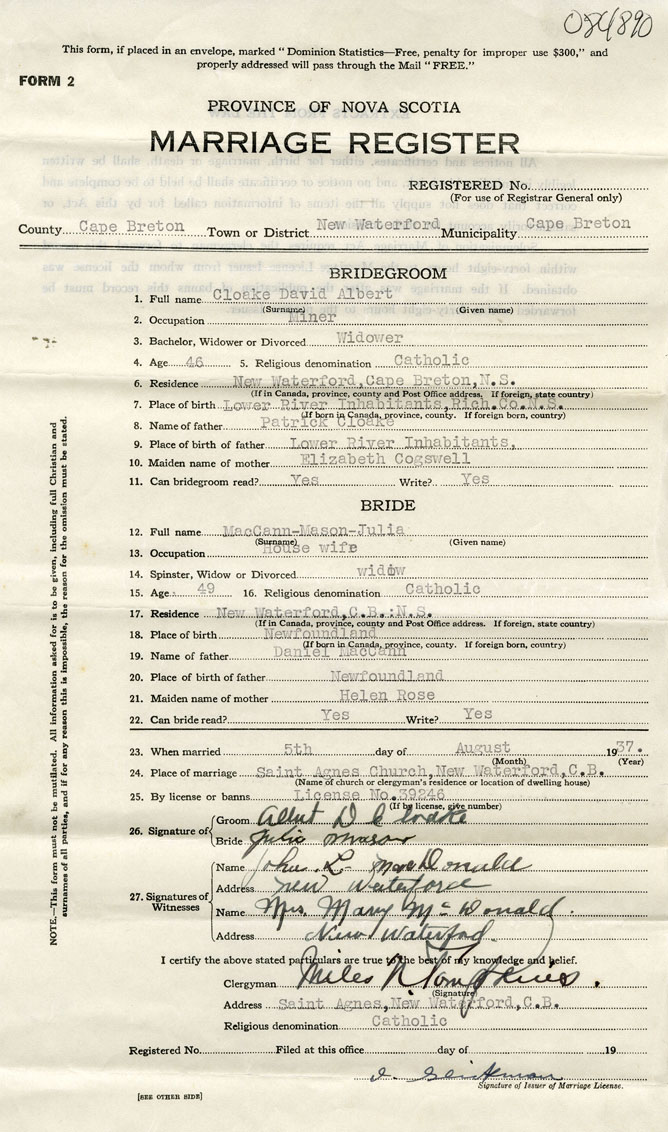 084890
This form, if placed in an envelope, marked "Dominion Statistics—Free, penalty for improper use $300," and
properly addressed will pass through the Mail "FREE."
FORM 2
PROVINCE OF NOVA SCOTIA
MARRIAGE REGISTER
REGISTERED No.
(For use of Registrar General only)
County Cape Breton Town or District New Waterford Municipality Cape Breton
BRIDEGROOM
1. Full name Cloake David Albert
(Surname) (Given name)
2. Occupation Miner
3. Bachelor, Widower or Divorced Widower
4. Age 46 5. Religious denomination Catholic
6. Residence New Waterford,Cape Breton,N.S.
(If in Canada, province, county and Post Office address. If foreign, state country)
7. Place of birth Lower River Inhabitants,Rich.Co.N.S.
(If born in Canada, province, county. If foreign born, country)
8. Name of father Patrick Cloake
9. Place of birth of father Lower River Inhabitants,
10. Maiden name of mother Elizabeth Cogswell
11. Can bridegroom read? Yes Write? Yes
BRIDE
12. Full name MacCann-Mason-Julia
(Surname) (Given name)
13. Occupation House wife
14. Spinster, Widow or Divorced widow
15. Age 49 16. Religious denomination Catholic
17. Residence New Waterford,C.B.:N.S.
(If in Canada, province, county and Post Office address. If foreign, state country)
18. Place of birth Newfoundland
(If born in Canada, province, county. If foreign born, country)
19. Name of father Daniel MacCann
20. Place of birth of father Newfoundland
21. Maiden name of mother Helen Rose
22. Can bride read? Yes Write? Yes
23. When married 5th day of August 1937.
(Month) (Year)
24. Place of marriage Saint Agnes Church,New Waterford,C.B.
(Name of church or clergyman's residence or location of dwelling house)
25. By license or banns License No.39246
(If by license, give number)
26. Signature of
Groom Albert D Cloake
Bride Julia Mason
27. Signatures of Witnesses
Name John L MacDonald
Address New Waterford
Name Mrs. Mary McDonald.
Address New Waterford.
I certify the above stated particulars are true to the best of my knowledge and belief.
Clergyman Miles N Tompkins.
(Signature)
Address Saint Agnes,New Waterford,C.B.
Religious denomination Catholic
Registered No. Filed at this office day of 19
Signature of Issuer of Marriage License.
[SEE OTHER SIDE]
NOTE.—This form must not be mutilated. All information asked for is to be given, including full Christian and
surnames of all parties, and if for any reason this is impossible, the reason for the omission must be stated.